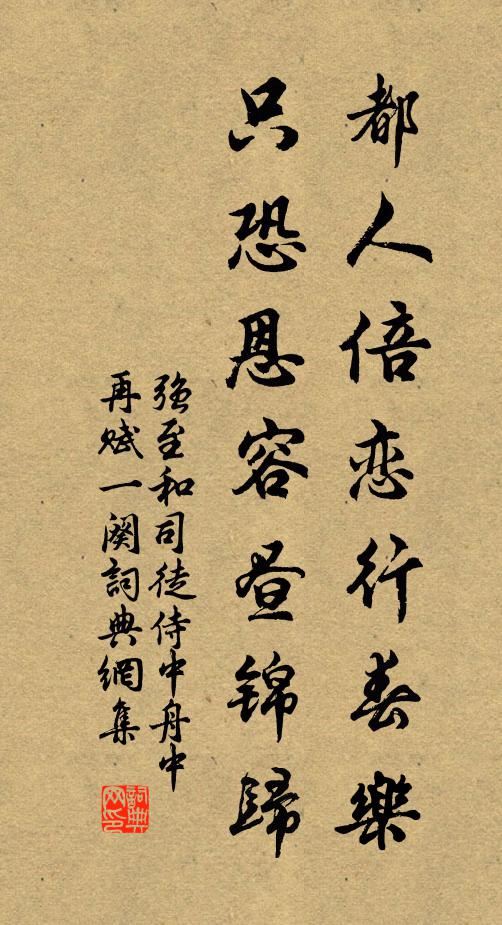 都人倍恋行春樂
只恐恩容昼锦歸
強至和司徒侍中舟中
再赋一阕詞典網集
詞典
网印